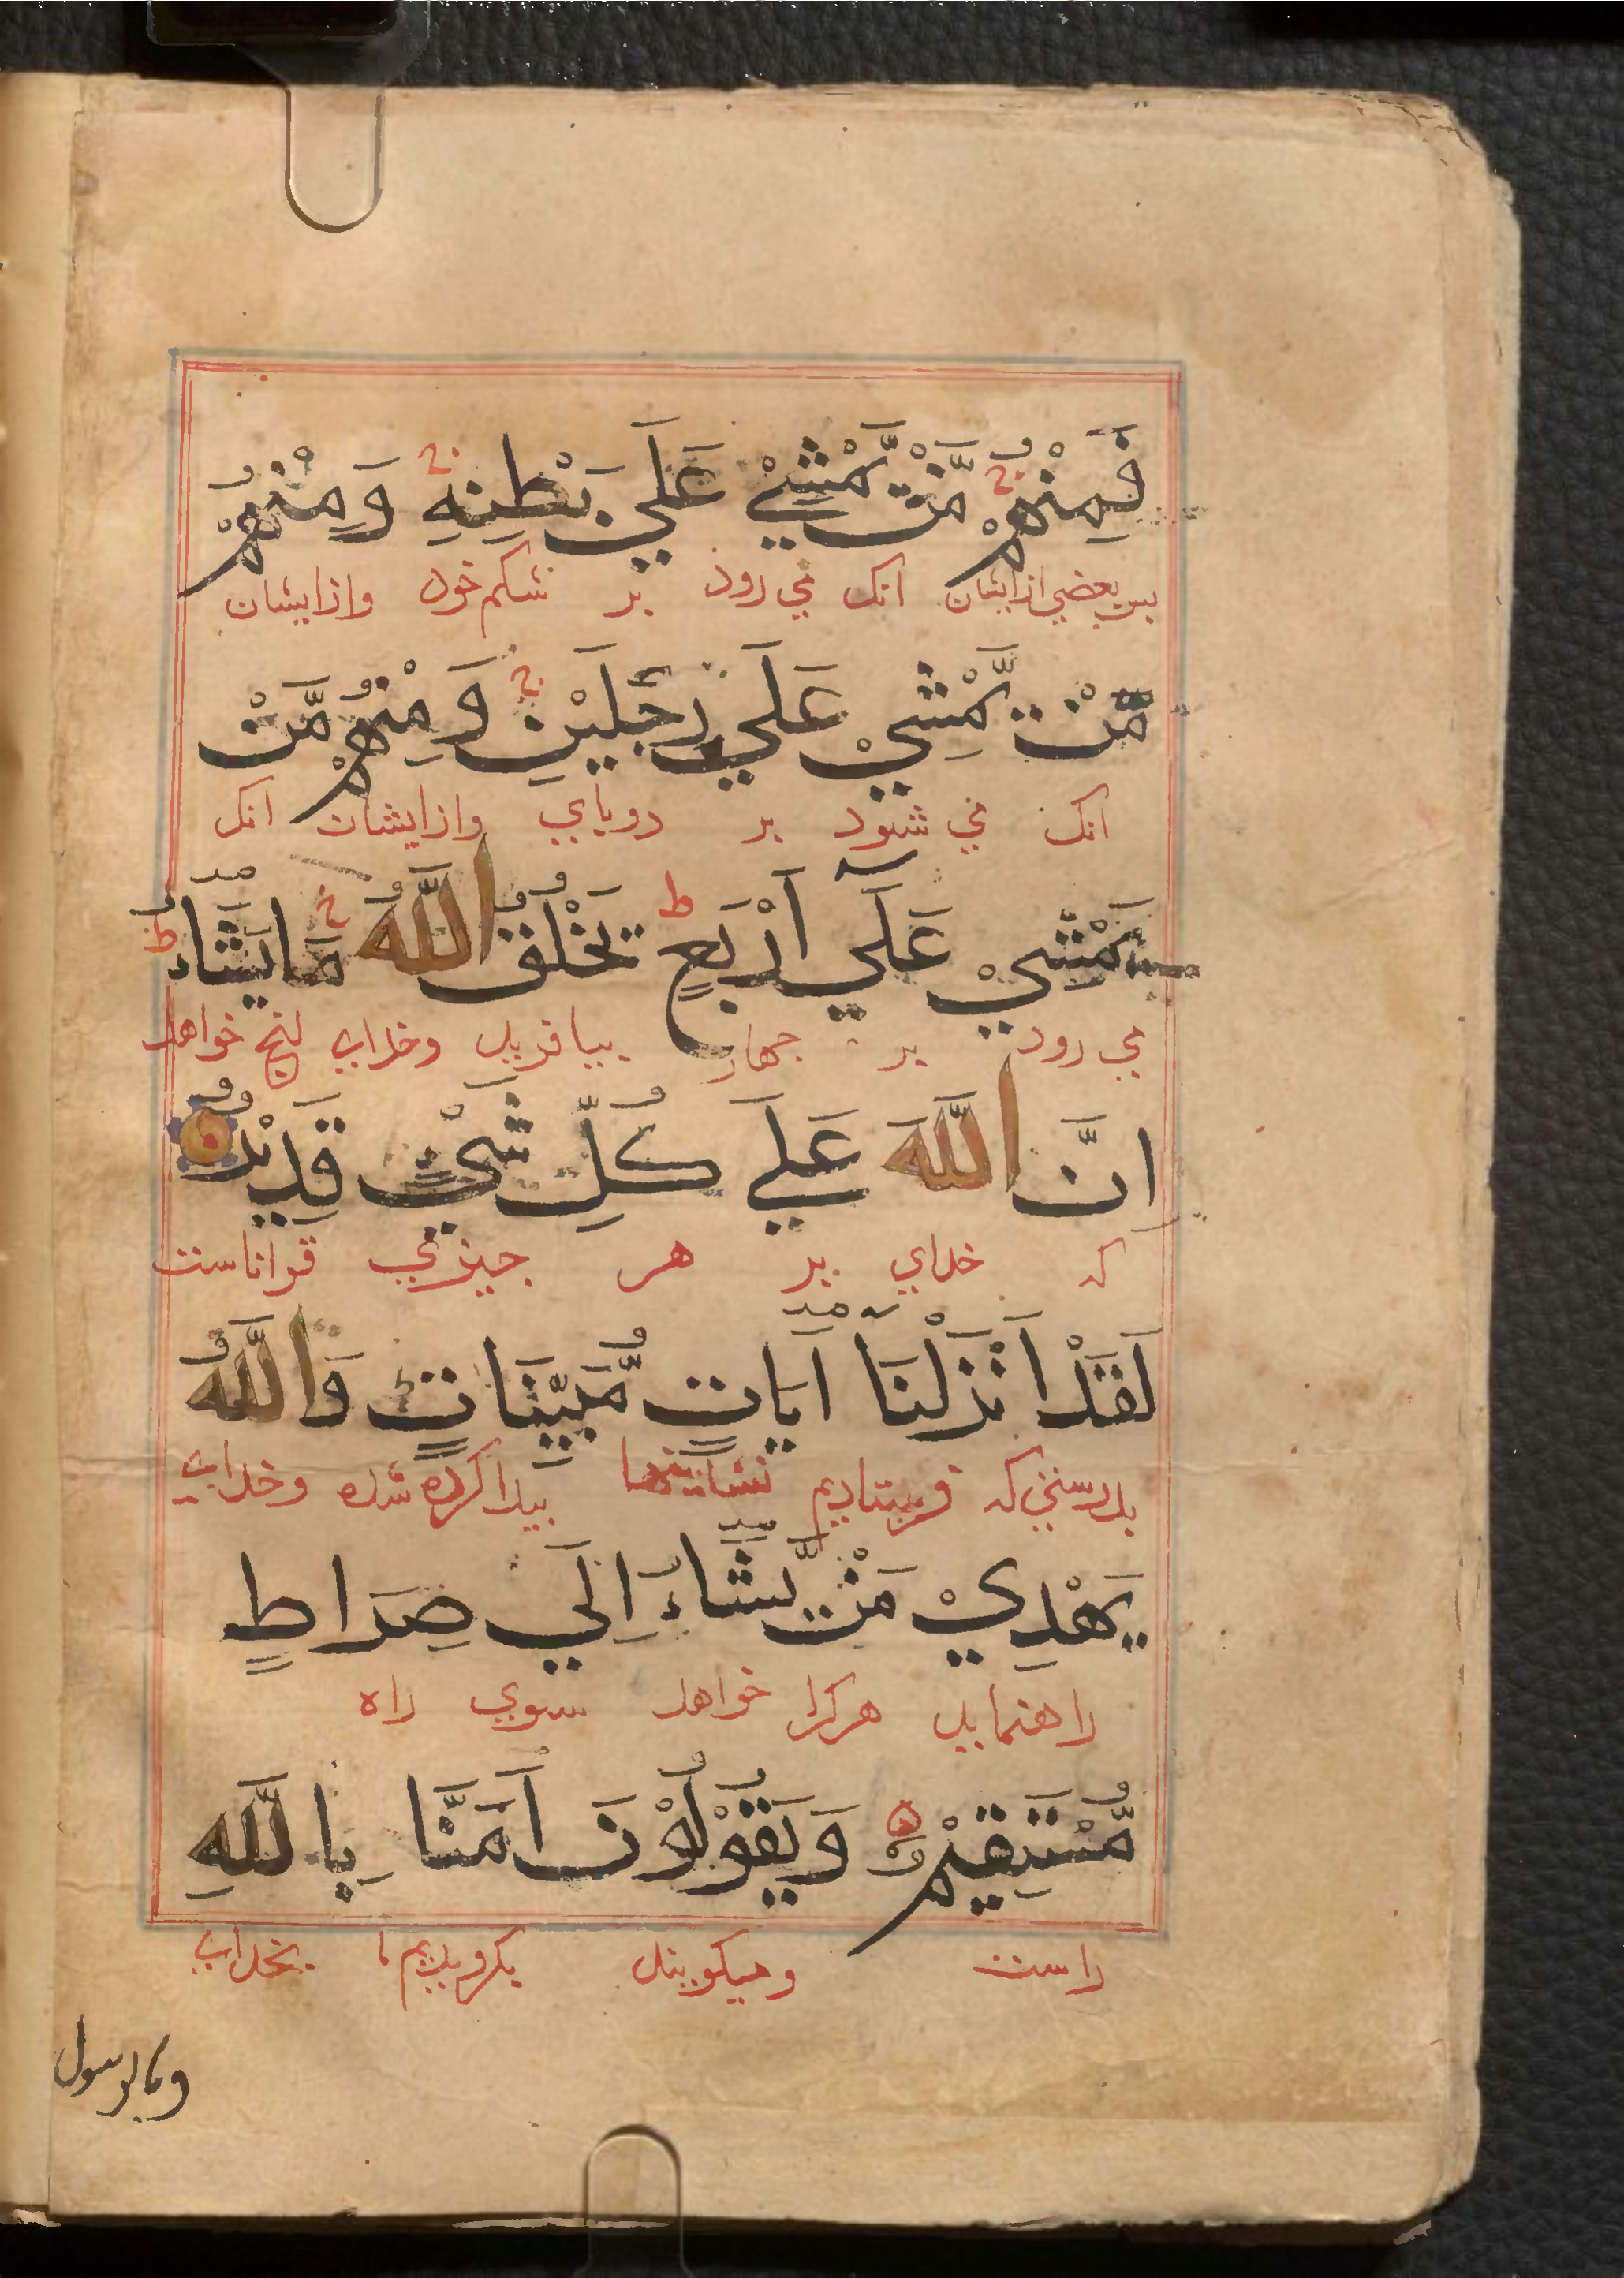 فَمِنْهُمْ مَّنْ يَّمْشِيْ عَلَي بَطْنِهٖ وَمِنْهُمْ
پس بعضي ازايشان انک مي رود بر شکم خود وازايشان
مَّنْ يَّمْشِيْ عَلَي رِجْلَيْنِ وَمِنْهُمْ مَّنْ
انک مي شود بر دوپاي وازايشان انک
يَّمْشِيْ عَلَي اَرْبَعٍ ط يَخْلُقُ اللّٰهُ مَا يَشَاءُ ط
مي رود بر چهار بيافريد وخداي انچ خواهد
اِنَّ اللّٰهَ عَلَي كُلِّ شَيْءٍ قَدِيْرٌ
که خداي بر هر چيزي تواناست
لَقَدْ اَنْزَلْنَا اٰيَاتٍ مُّبَيِّنَاتٍ وَاللّٰهُ
بدرستي که فرستاديم نشانيها پيدا کرده شده وخداي
يَهْدِيْ مَنْ يَّشَاءُ اِلَي صِرَاطٍ
راهنمايد هرکرا خواهد سوي راه
مُّسْتَقِيْمٍ وَيَقُوْلُوْنَ اٰمَنَّا بِاللّٰهِ
راست وميکويند بکرويديم ما بخداي
وبالرسول